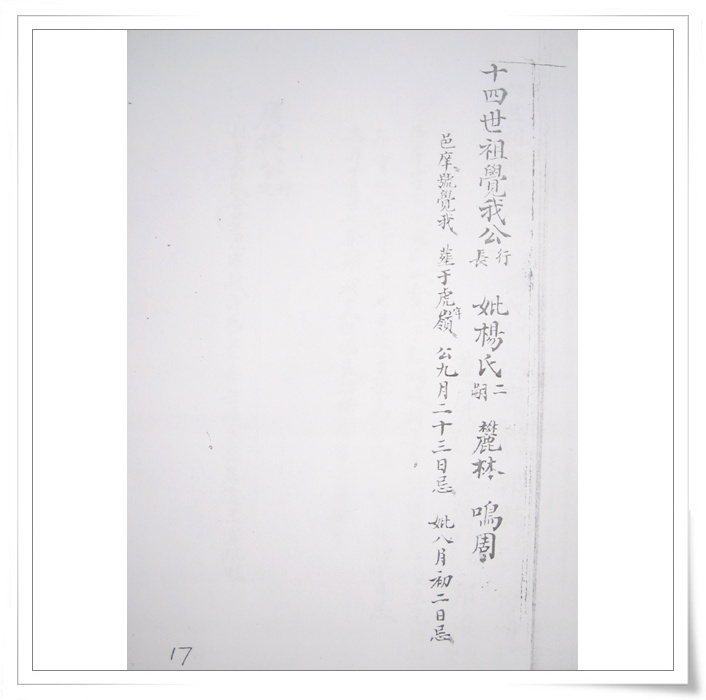 十四世祖覺我公行長 妣楊氏二嗣 麓林 鳴周
邑庠號覺我 葬于虎嶺 公九月二十三日忌 妣八月初二日忌
17